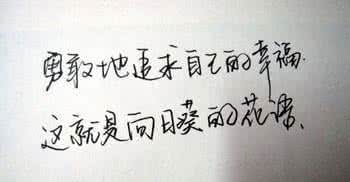 勇敢地追求自己的幸福.
这就是向日葵的花语.